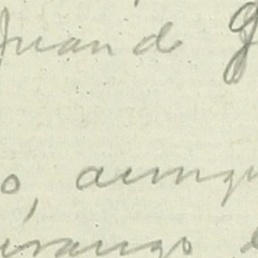 Juan d G
o, aunqu
urango